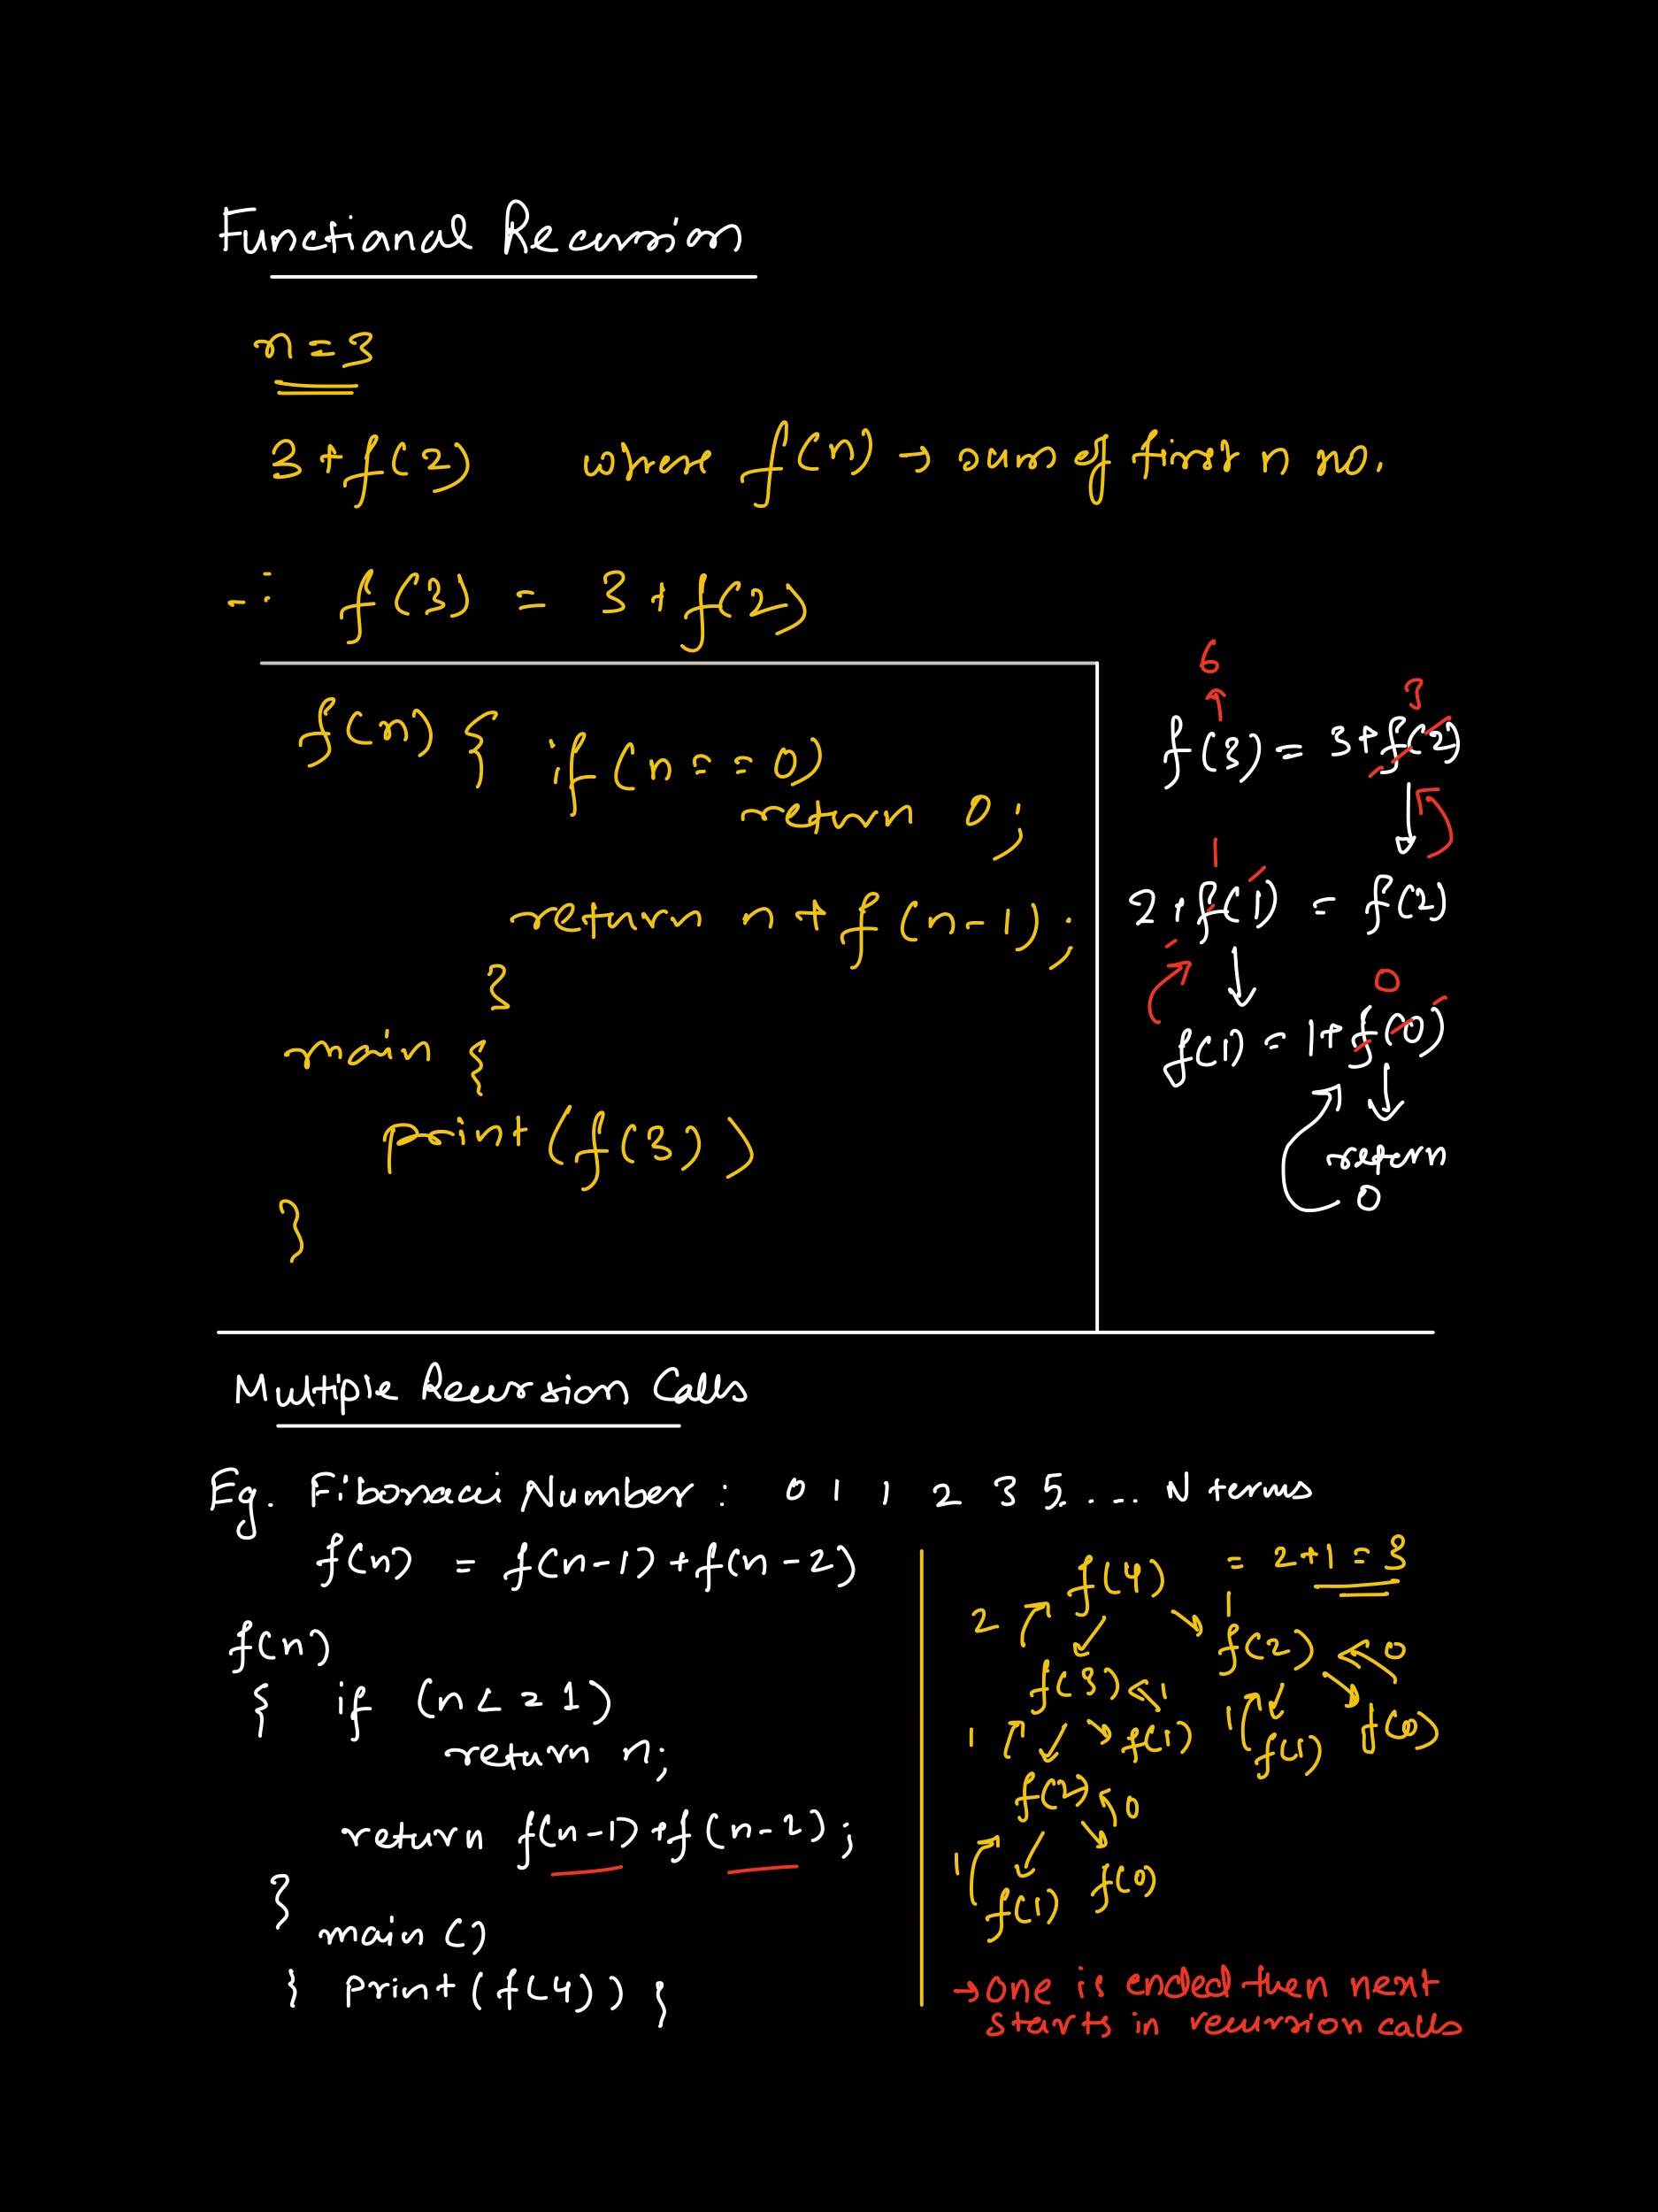 Functional Recursion
n = 3
3 + f(2) where f(n) → sum of first n no.
∴ f(3) = 3 + f(2)
f(n) { if (n == 0)
return 0;
return n + f(n-1);
}
main {
print(f(3))
}
6
3
f(3) = 3 + f(2)
1
2 + f(1) = f(2)
0
f(1) = 1 + f(0)
return
0
Multiple Recursion Calls
Eg. Fibonacci Number : 0 1 1 2 3 5 .... N terms
f(n) = f(n-1) + f(n-2)
f(n)
{ if (n <= 1)
return n;
return f(n-1) + f(n-2);
}
main ()
{ print(f(4)) }
f(4) = 2+1 = 3
2 1
f(2) 0
f(3) 1
1 f(1) 1 f(1) f(0)
f(2) 0
1 f(1) f(0)
→ one is ended then next
starts in recursion calls